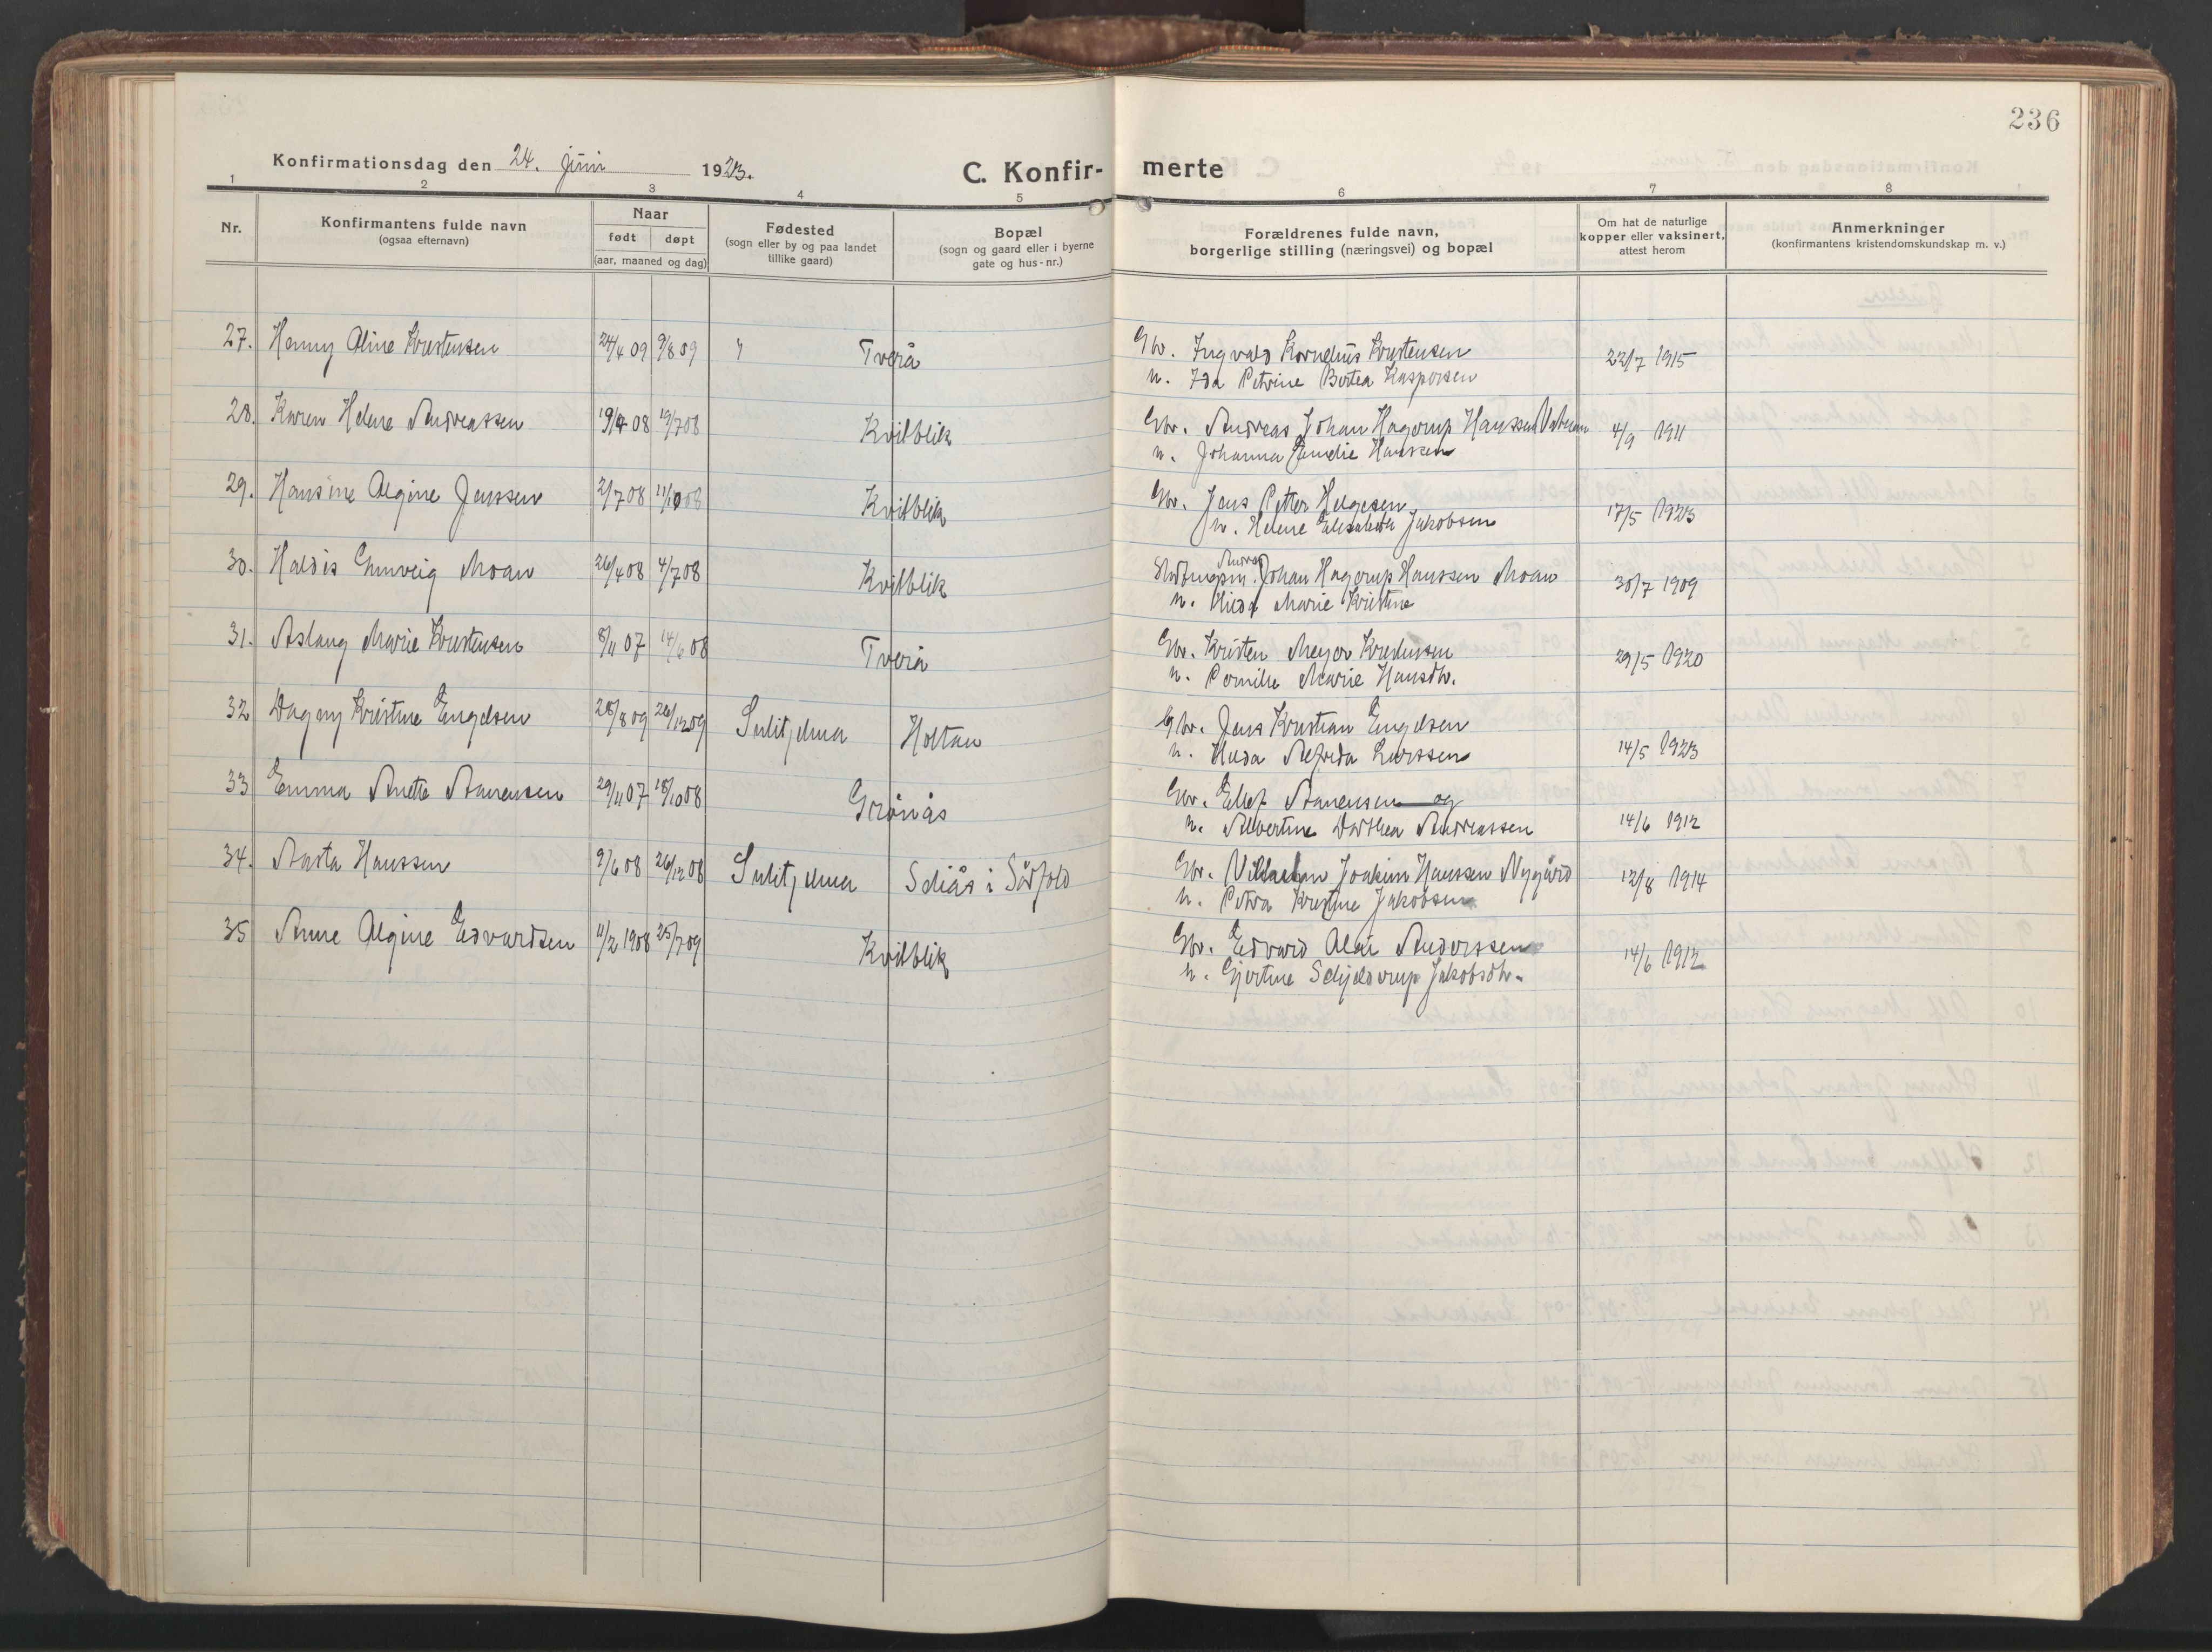 236
Konfirmationsdag den 24. juni 1923.
C. Konfir-merte
1 2 3 4 5 6 7 8
Nr.
Konfirmantens fulde navn
(ogsaa efternavn)
Naar
født døpt
(aar, maaned og dag)
Fødested
(sogn eller by og paa landet
tillike gaard)
Bopæl
(sogn og gaard eller i byerne
gate og hus-nr.)
Forældrenes fulde navn,
borgerlige stilling (næringsvei) og bopæl
Om hat de naturlige
kopper eller vaksinert,
attest herom
Anmerkninger
(konfirmantens kristendomskundskap m. v.)
27. Henny Aline Kristensen 24/4 09 9/8 09 " Tverå Gbr. Ingvald Kornelius Kristensen 22/7 1915
n. Ida Petrine Bertea Kaspersen
28. Karen Helene Andreassen 19/4 08 19/7 08 Kvilblik Gbr. Andreas Johan Hagerup Hanssen 4/9 1911
n. Johanna Hanssen
29. Hansine Algine Jenssen 2/7 08 11/10 08 Kvitblik Gbr. Jens Petter Helgesen 17/5 1923
n. Helene Elisabeth Jakobsen
30. Haldis Gunveig Moan 26/4 08 4/7 08 Kvitblik Andreas Johan Hagerup Hanssen Moan 30/7 1909
n. Hilda Marie Kristine
31. Aslaug Marie Kristensen 8/11 07 14/6 08 Tverå Gbr. Kristen Meyer Kristensen 29/5 1920
n. Pernille Marie Hansdtr.
32 Dagny Kristine Engelsen 28/8 09 26/12 09 Sulitjelma Holtan Gbr. Jens Kristian Engelsen
n. Hilda Alfrida Larssen 14/5 1923
33 Emma Anette Aanensen 29/11 07 18/10 08 Grønås Gbr. Ellef Aanensen og
n. Albertine Dorthea Andreassen 14/6 1912
34. Aasta Hanssen 9/6 08 26/12 08 Sulitjelma Seljås i Sørfold Gbr. Vilhelm Joakim Hanssen Nygård 12/8 1914
n. Petra Kristine Jakobsen
35 Anne Algine Edvardsen 11/2 1908 25/7 09 Kvitblik Gbr. Edvard Olai Anderssen 14/6 1912
n. Gjertine Schjelderup Jakobsdtr.